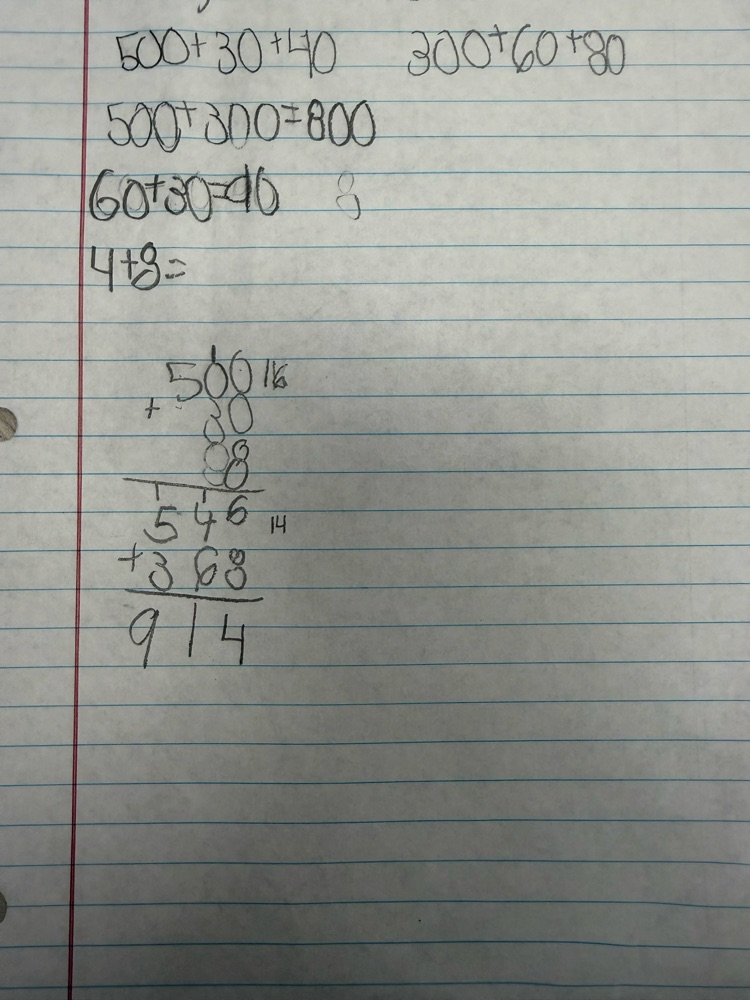 500+30+40 300+60+80
500+300=800
60+30=90 8
4+8=
1
500 16
+ 30
88
1 1
546 14
+368
914